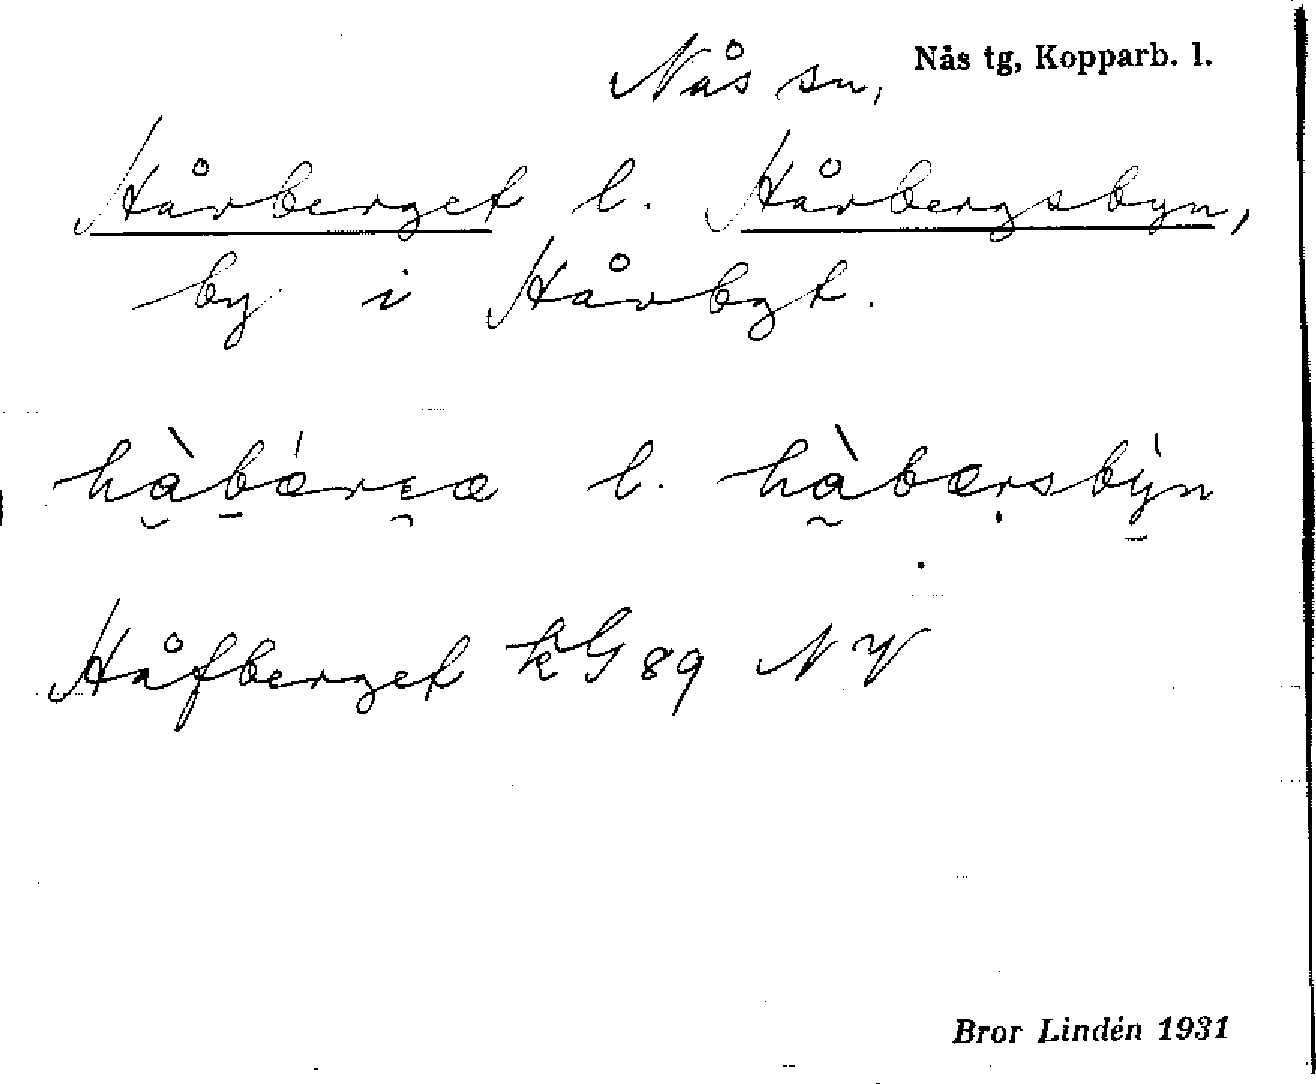 Nås sn, Nås tg, Kopparb. l.
Håvberget l. Håvbergsbyn,
by i Håvbgt.
l.
Håfberget kG 89 NV
Bror Lindén 1931